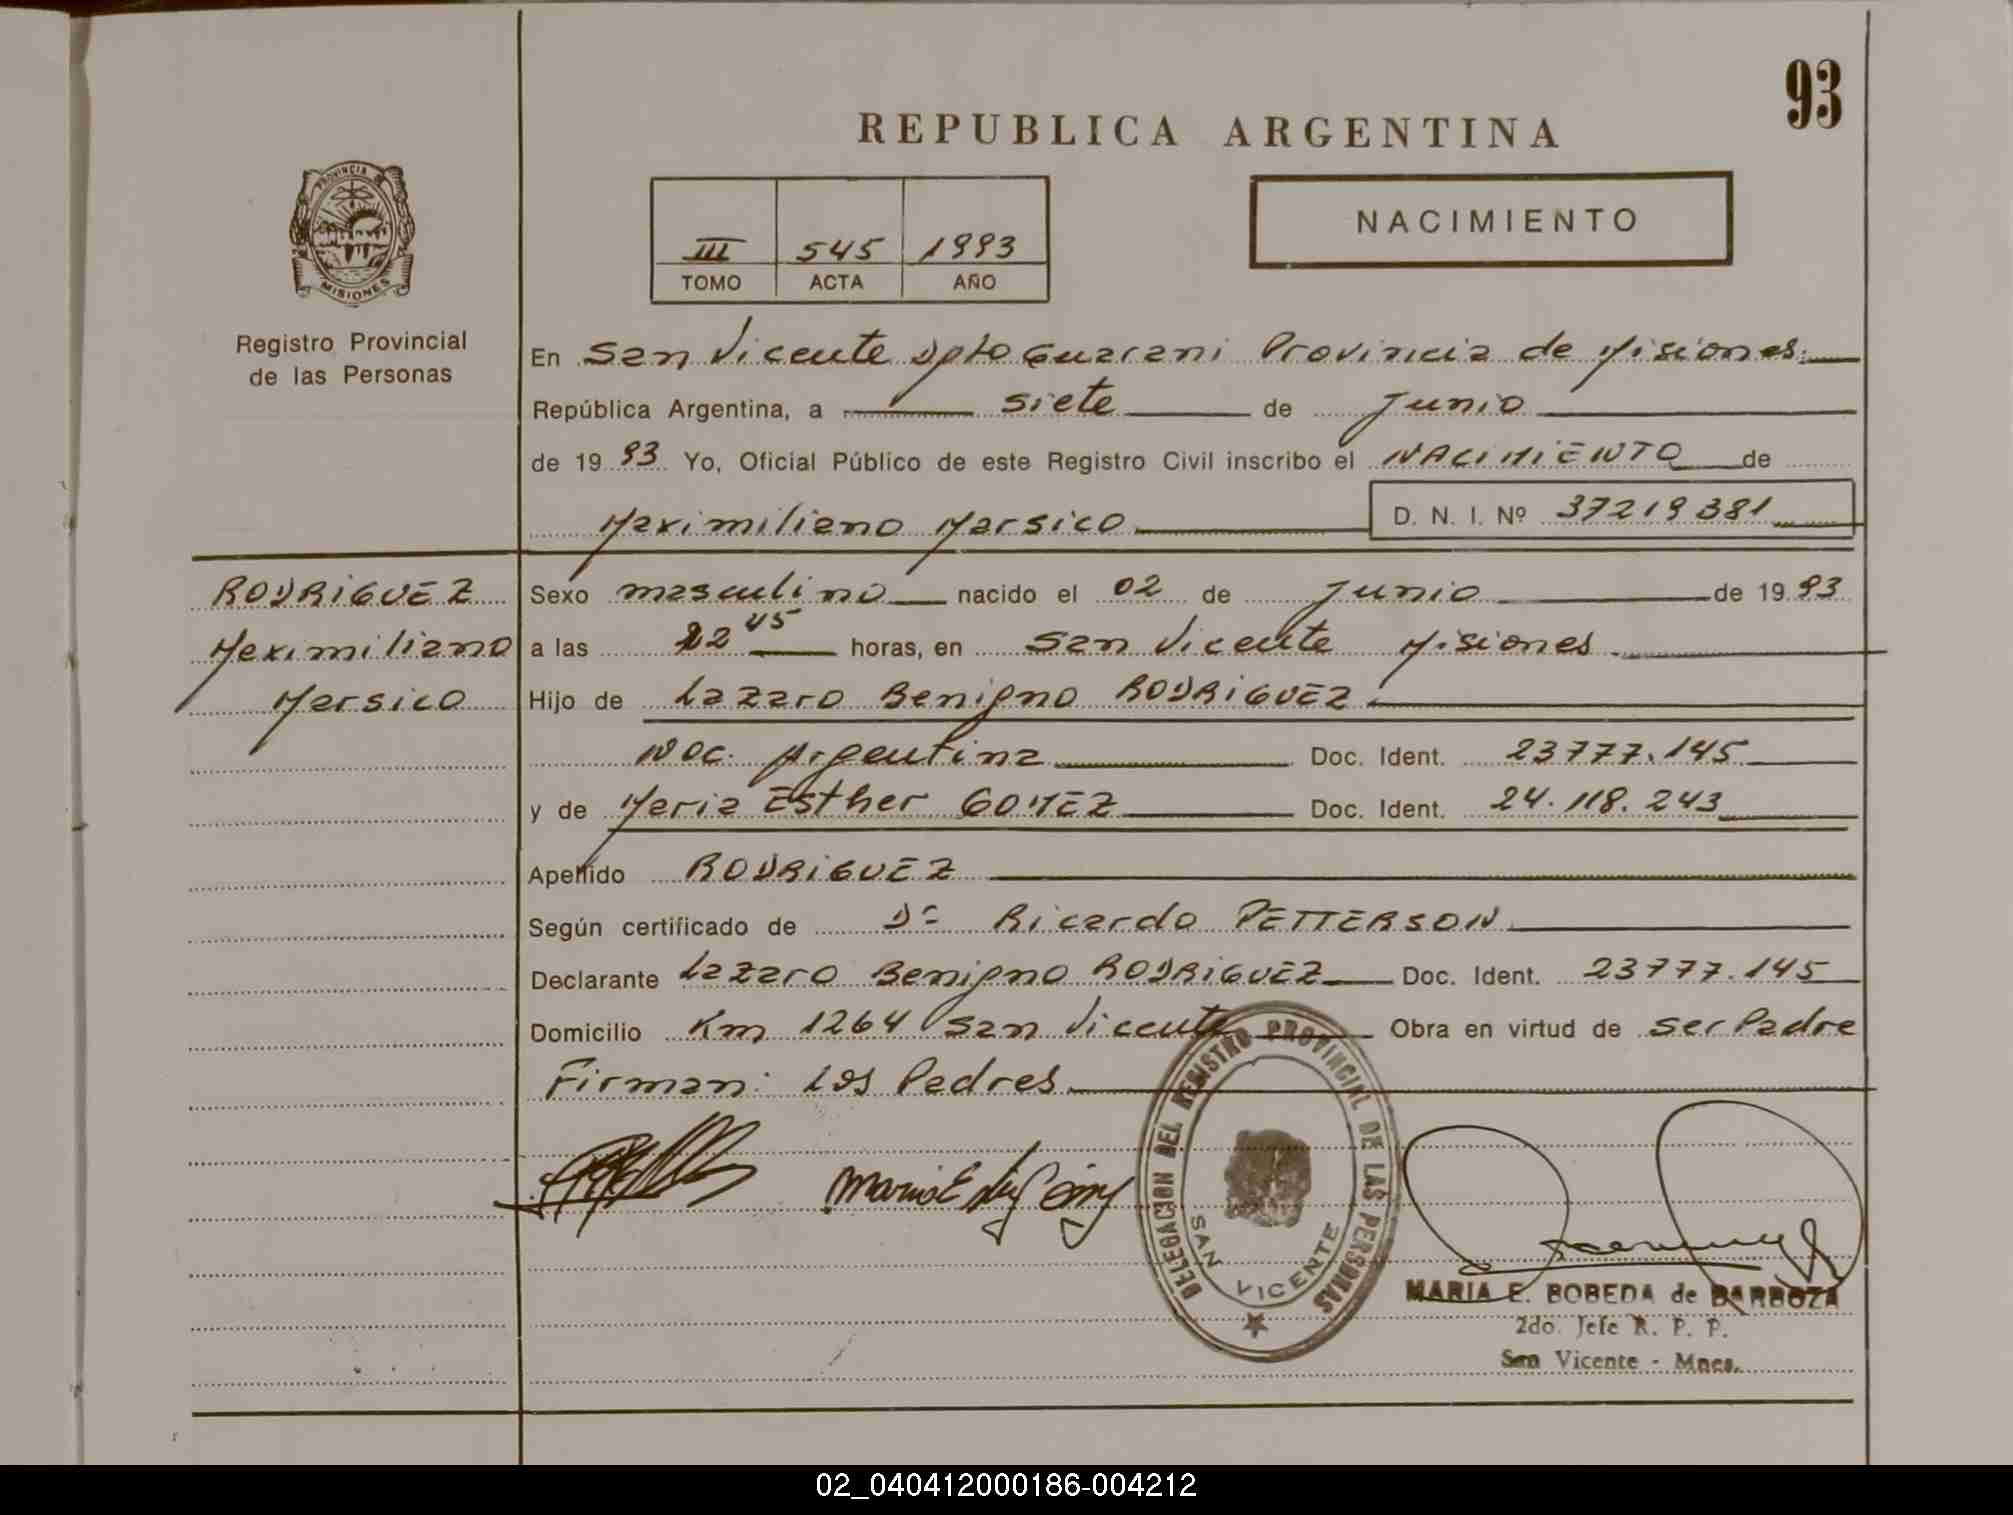 93
REPUBLICA ARGENTINA
PROVINCIA DE
MISIONES
III 545 1993
TOMO ACTA AÑO
NACIMIENTO
Registro Provincial
de las Personas
En San Vicente Dpto Guarani Provincia de Misiones.
República Argentina, a siete de Junio
de 19 93 Yo, Oficial Público de este Registro Civil inscribo el NACIMIENTO de
Maximiliano Marsico D. N. I. Nº 37219381
RODRIGUEZ
Maximiliano
Marsico
Sexo masculino nacido el 02 de Junio de 19 93
a las 22 45 horas, en San Vicente Misiones
Hijo de Lazaro Benigno RODRIGUEZ
Nac. Argentina Doc. Ident. 23777.145
y de Maria Esther GOMEZ Doc. Ident. 24.118.243
Apellido RODRIGUEZ
Según certificado de Dr Ricardo PETTERSON
Declarante Lazaro Benigno RODRIGUEZ Doc. Ident. 23777.145
Domicilio Km 1264 San Vicente Obra en virtud de ser Padre
Firman: Los Padres
DELEGACION DEL REGISTRO PROVINCIAL DE LAS PERSONAS
SAN VICENTE
MARIA E. BOBEDA de BARBOZA
2do. Jefe R. P. P.
San Vicente - Mnes.
02_040412000186-004212